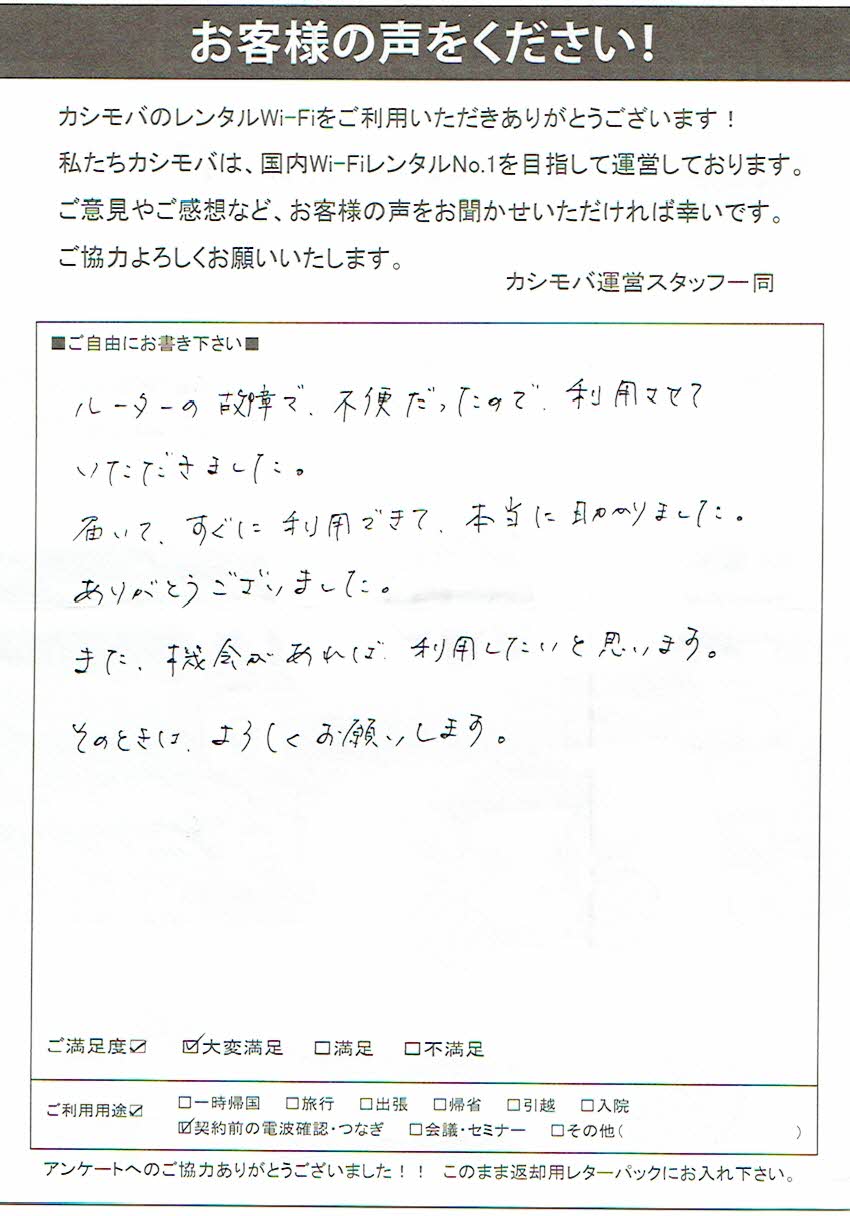 お客様の声をください!
カシモバのレンタルWi-Fiをご利用いただきありがとうございます！
私たちカシモバは、国内Wi-FiレンタルNo.1を目指して運営しております。
ご意見やご感想など、お客様の声をお聞かせいただければ幸いです。
ご協力よろしくお願いいたします。
カシモバ運営スタッフ一同
■ご自由にお書き下さい■
ルーターの故障で、不便だったので、利用させて
いただきました。
届いて、すぐに利用できて、本当に助かりました。
ありがとうございました。
また、機会があれば、利用したいと思います。
そのときは、よろしくお願いします。
ご満足度☑ ☑大変満足 □満足 □不満足
ご利用用途☑ □一時帰国 □旅行 □出張 □帰省 □引越 □入院
☑契約前の電波確認・つなぎ □会議・セミナー □その他( )
アンケートへのご協力ありがとうございました！！ このまま返却用レターパックにお入れ下さい。